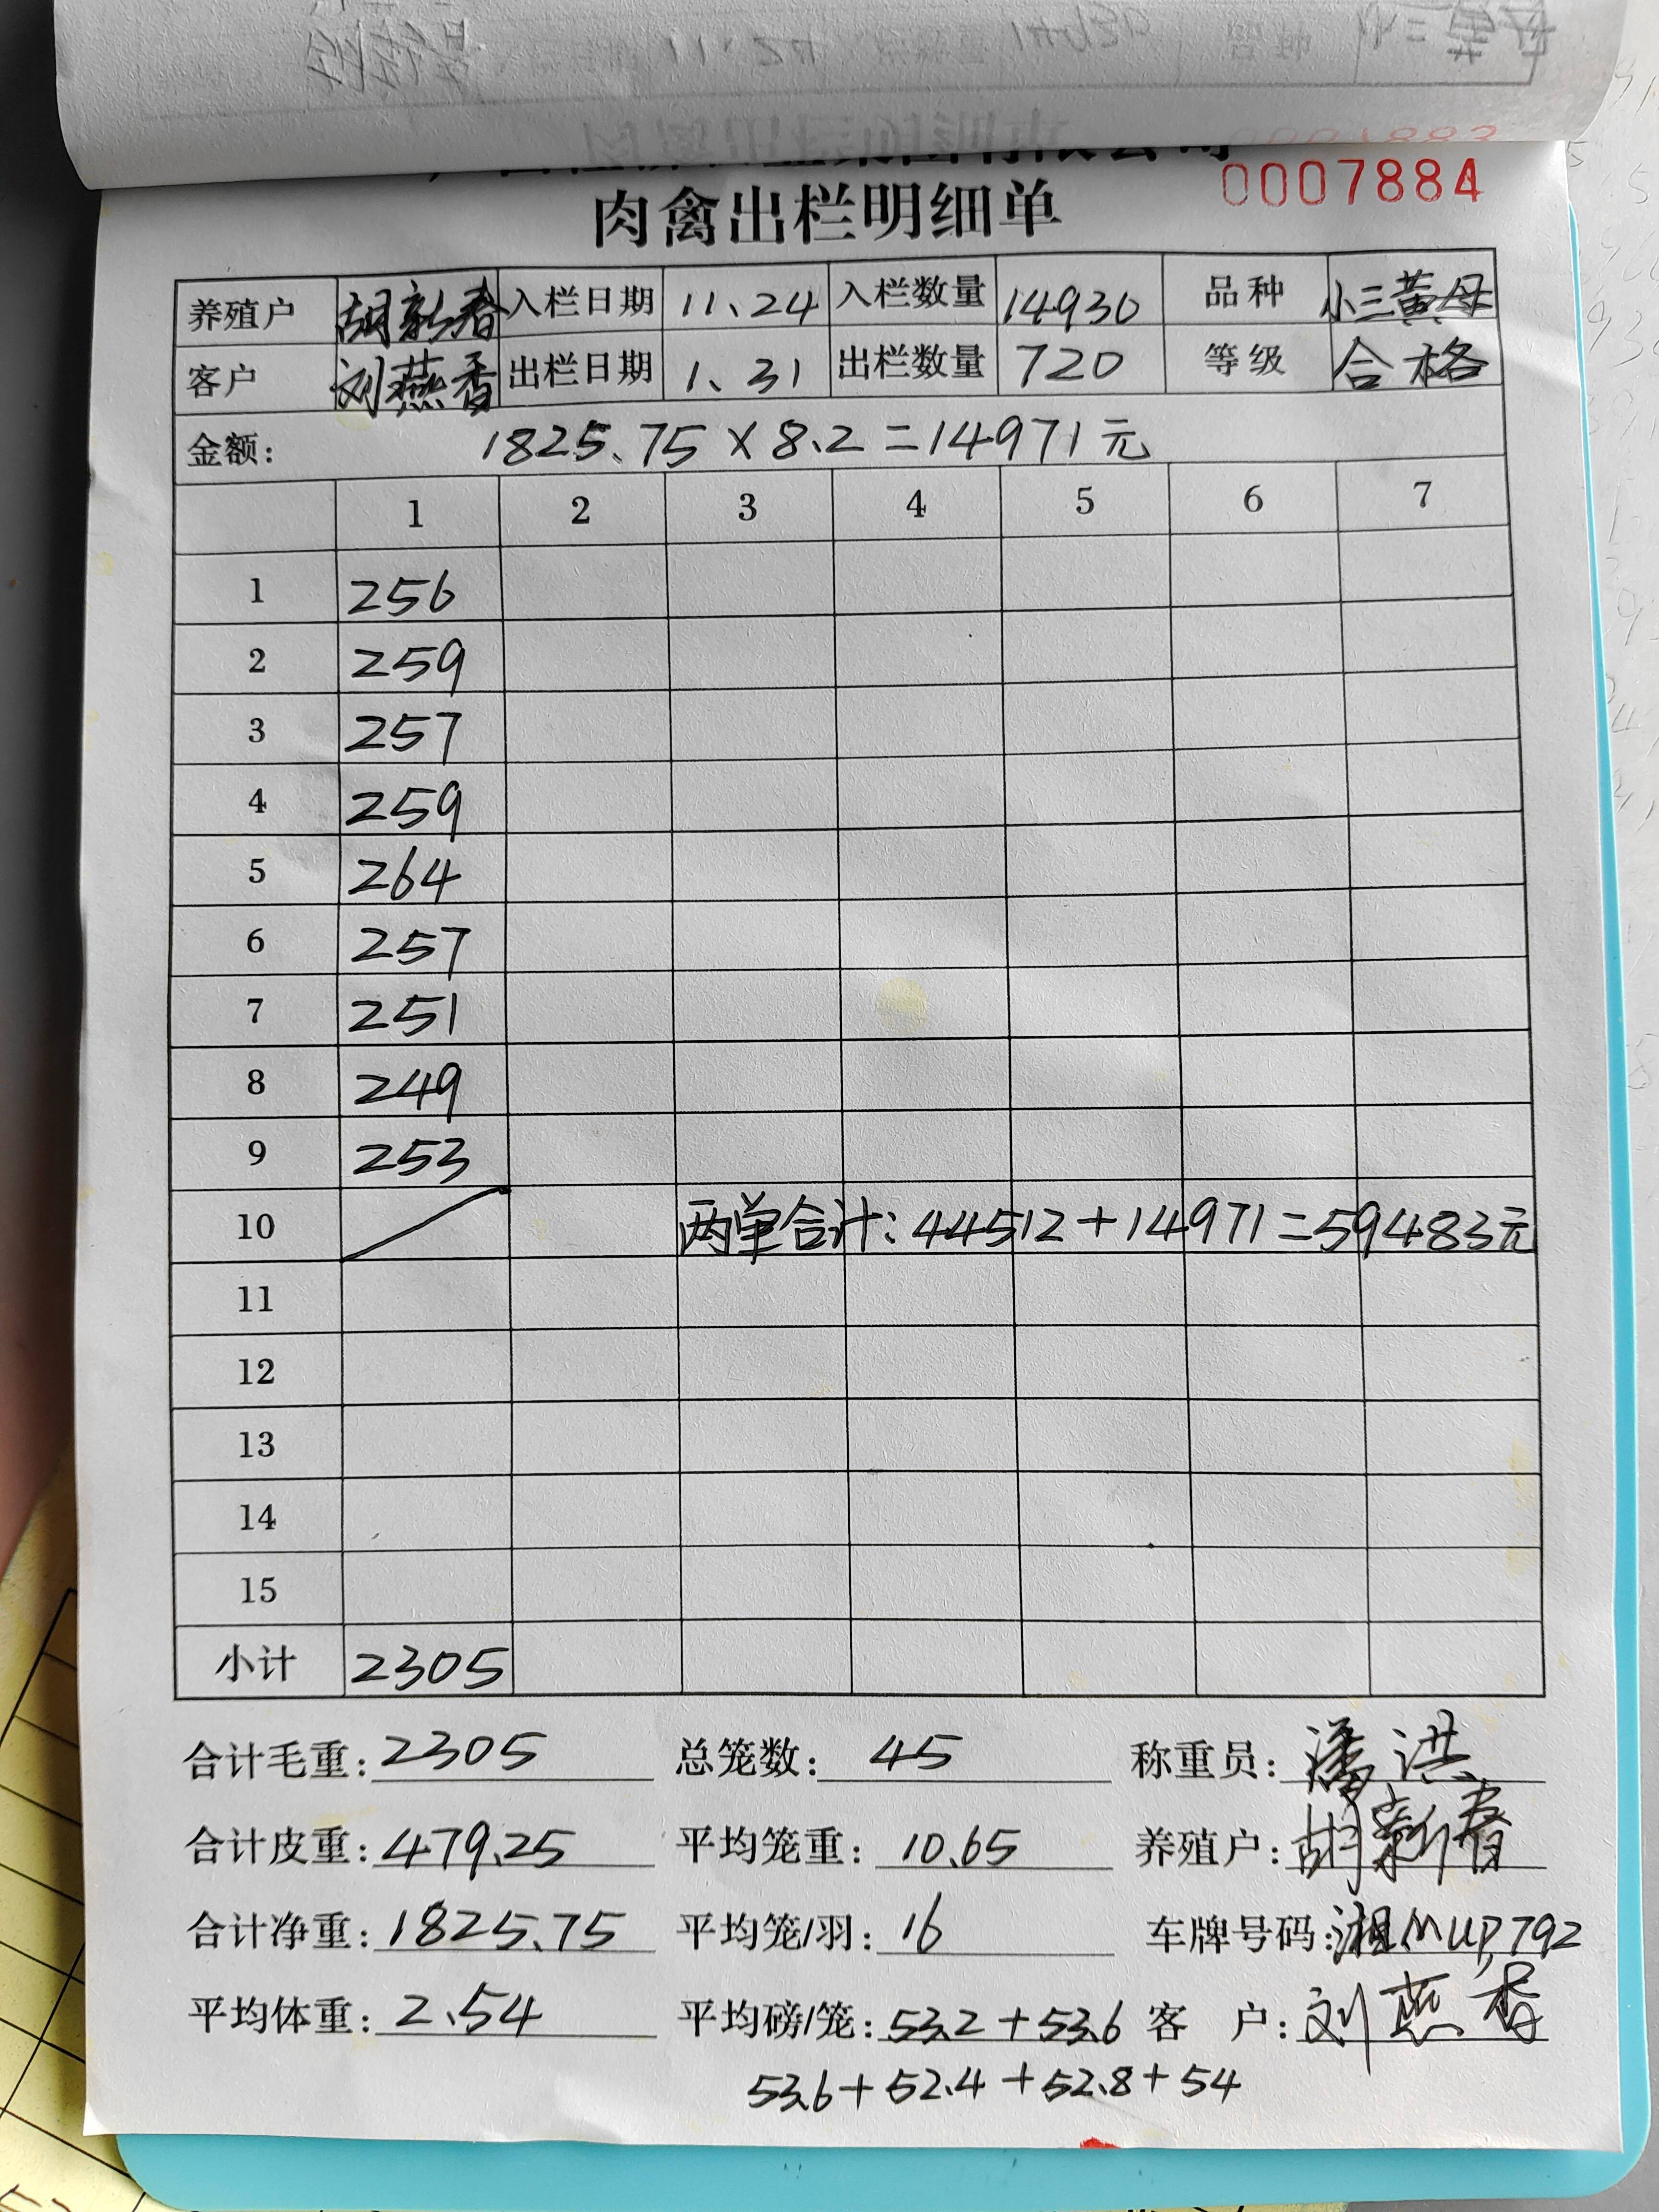 0007884
肉禽出栏明细单
养殖户 胡新春 入栏日期 11、24 入栏数量 14930 品种 小三黄母
客户 刘燕香 出栏日期 1、31 出栏数量 720 等级 合格
金额: 1825、75×8、2=14971元
1 2 3 4 5 6 7
1 256
2 259
3 257
4 259
5 264
6 257
7 251
8 249
9 253
10 两单合计:44512+14971=59483元
11
12
13
14
15
小计 2305
合计毛重:2305 总笼数:45 称重员:潘洪
合计皮重:479、25 平均笼重:10、65 养殖户:胡新春
合计净重:1825、75 平均笼/羽:16 车牌号码:湘MUP792
平均体重:2、54 平均磅/笼:53、2+53、6 客 户:刘燕香
53、6+52、4+52、8+54